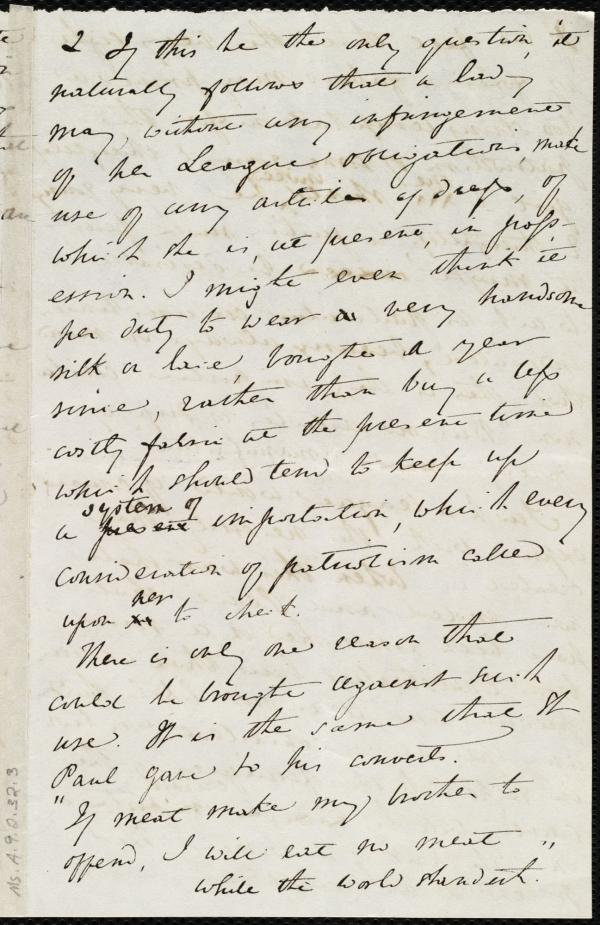 2 If this be the only question, it
naturally follows that a lady
may, without any infringement
of her League obligations, make
use of any articles of dress, of
which she is, at present, in poss-
ession. I might even think it
her duty to wear a very handsome
silk or lace, bought a year
since, rather than buy a less
costly fabric at the present time
which should tend to keep up
a present system of importation, which every
consideration of patriotism called
upon her to check.
There is only one reason that
could be brought against such
use. It is the same that St
Paul gave to his converts.
"If meat make my brother to
offend, I will eat no meat
while the world standeth."
Ms. A.9.2.32.3